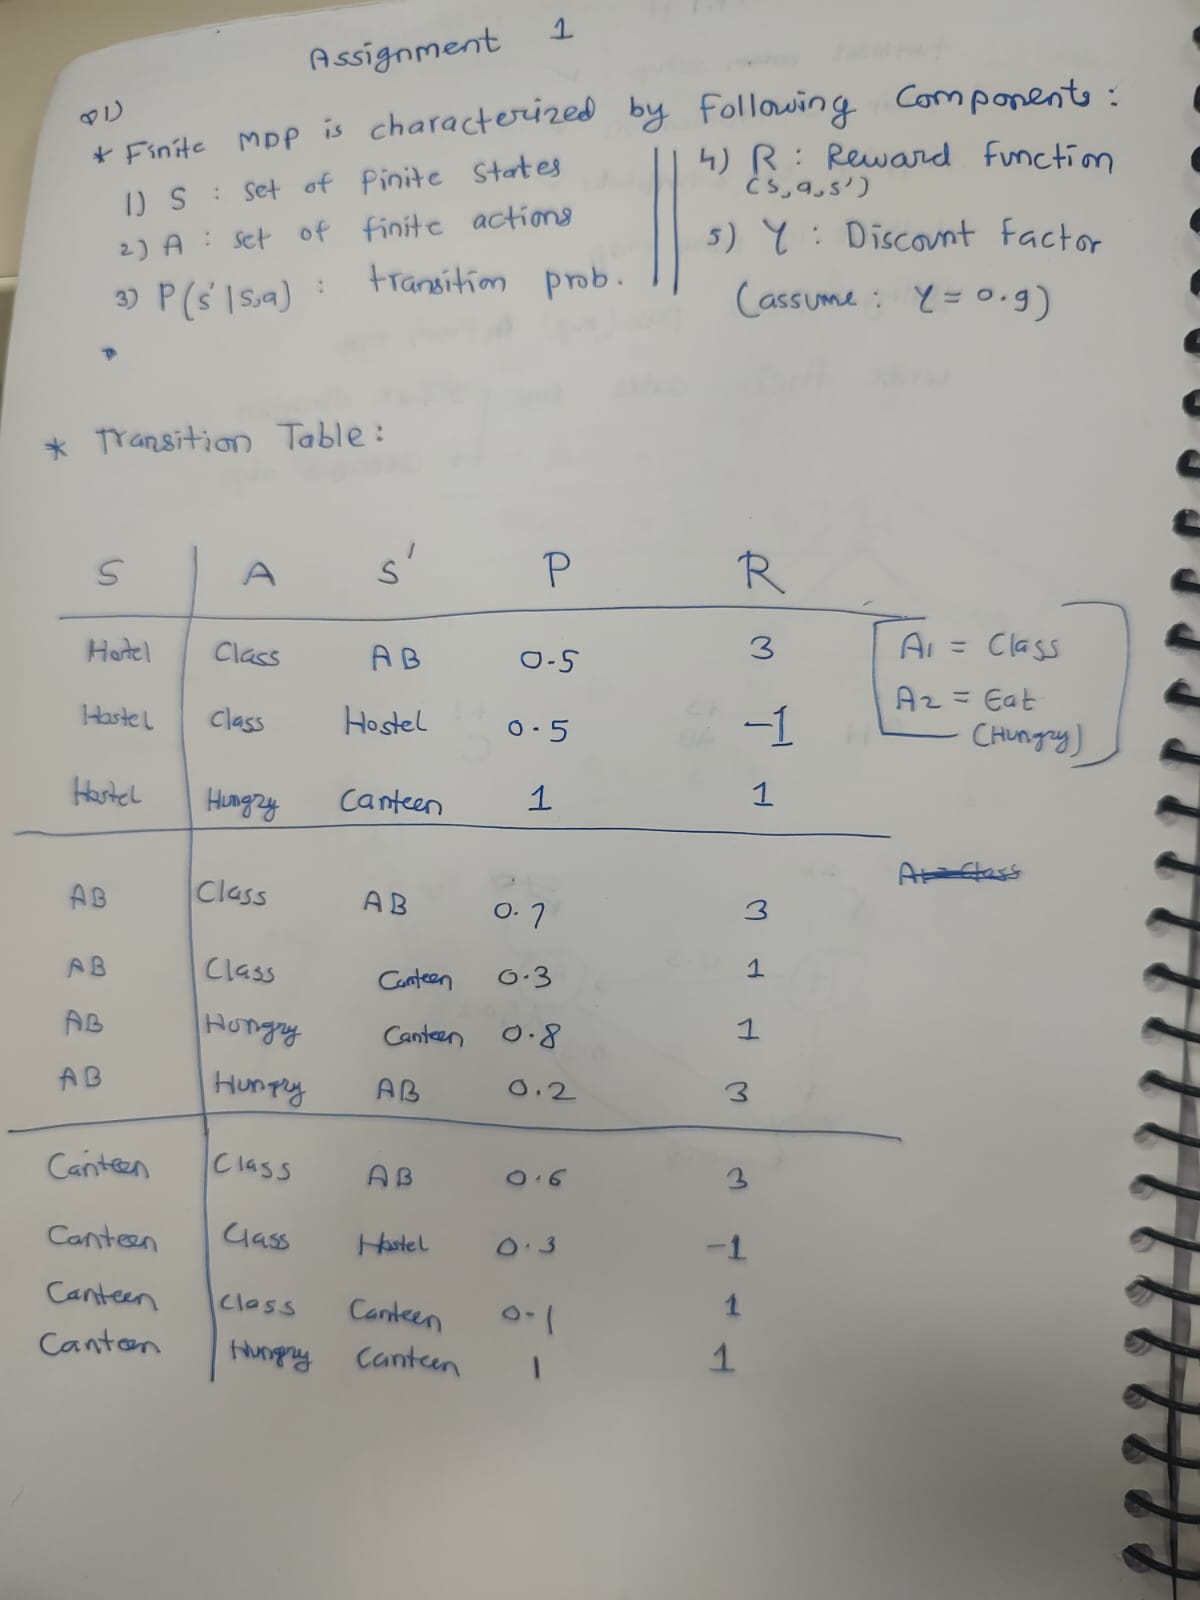 Assignment 1
Q1)
* Finite MDP is characterized by Following Components:
1) S : Set of Finite States
2) A : set of finite actions
3) P(s'|s,a) : transition prob.
4) R : Reward Function
(s,a,s')
5) γ : Discount Factor
(assume: γ = 0.9)
* Transition Table:
S A S' P R
Hostel Class AB 0.5 3
Hostel Class Hostel 0.5 -1
Hostel Hungry Canteen 1 1
A1 = Class
A2 = Eat
(Hungry)
AB Class AB 0.7 3
A1 = Class
AB Class Canteen 0.3 1
AB Hungry Canteen 0.8 1
AB Hungry AB 0.2 3
Canteen Class AB 0.6 3
Canteen Class Hostel 0.3 -1
Canteen Class Canteen 0.1 1
Canteen Hungry Canteen 1 1